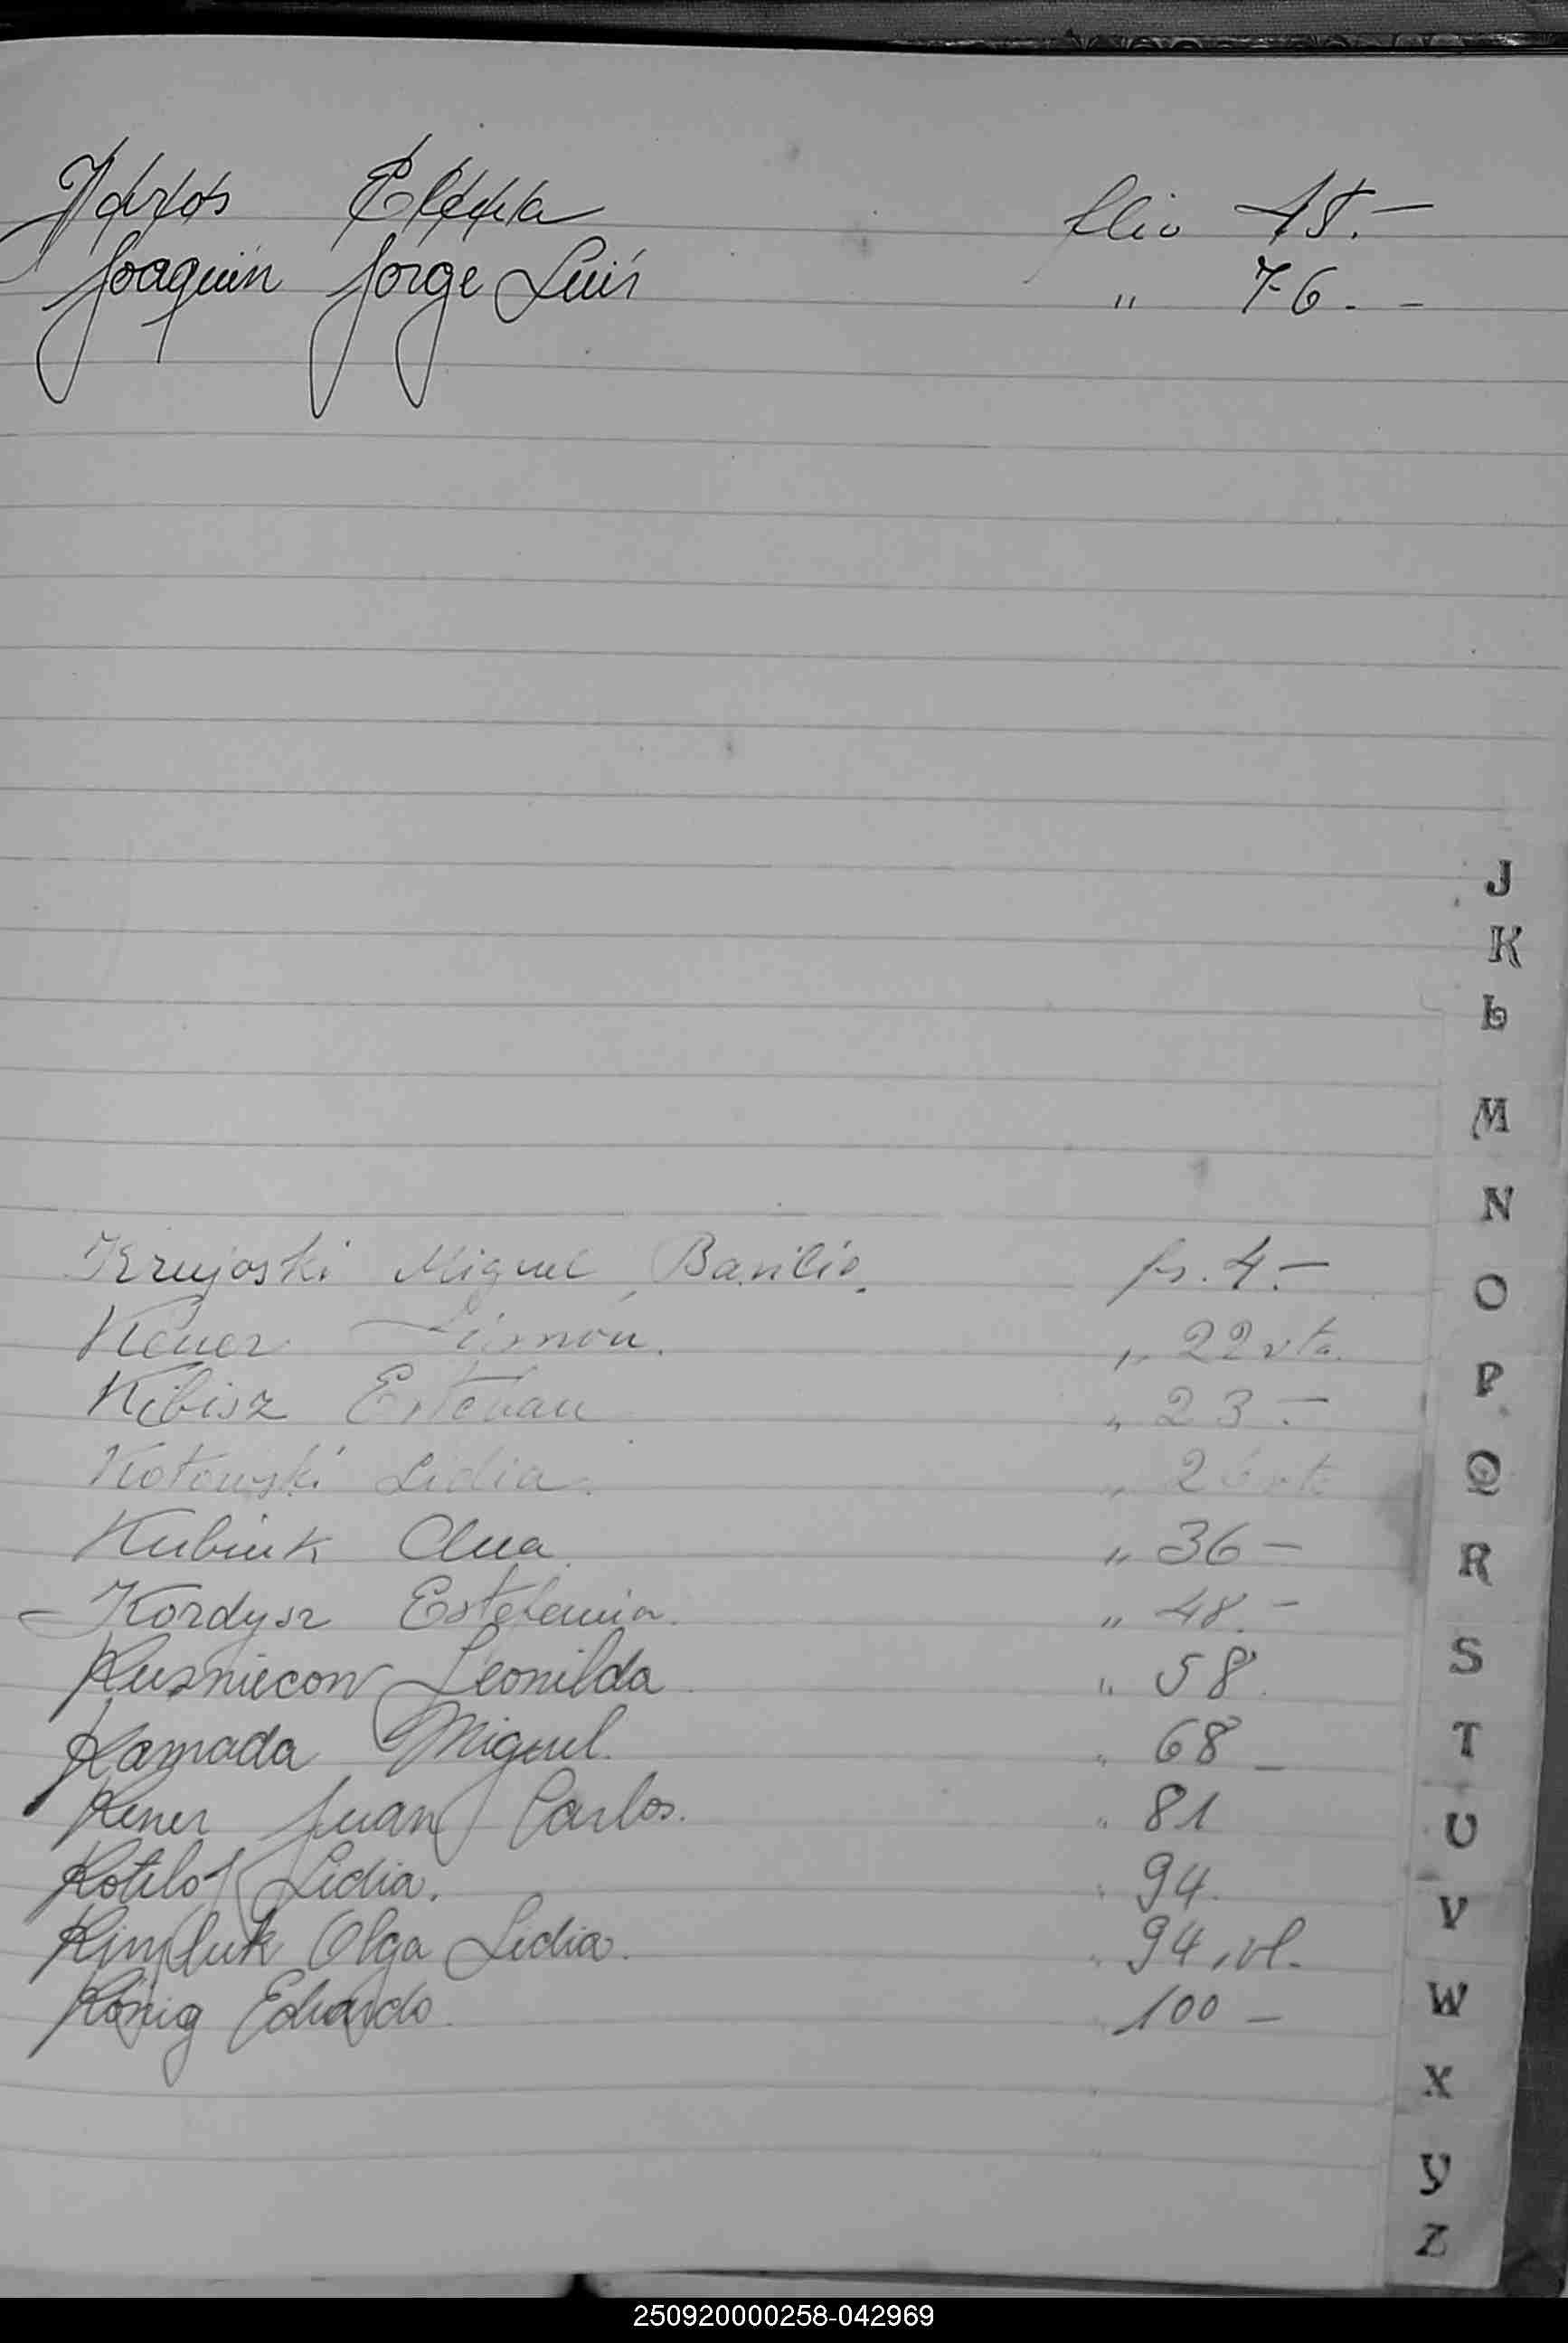 Joaquin Jorge Luis " 76. -
J
K
L
M
Krujoski Miguel Basilio. fs. 4.-
N
Kener Simón. " 22 vta.
O
Kibisz Esteban " 23.-
P
Kotowski Lidia. " 26 vta
Q
Kubiuk Ana. " 36 -
R
Kordysz Estefania. " 48.-
Kusniecow Leonilda " 58.
S
Kamada Miguel. " 68 -
T
Kener Juan Carlos. " 81
U
Kotelo Lidia. " 94.
V
Olga Lidia. " 94, vt.
König Eduardo. " 100 -
W
X
Y
Z
250920000258-042969